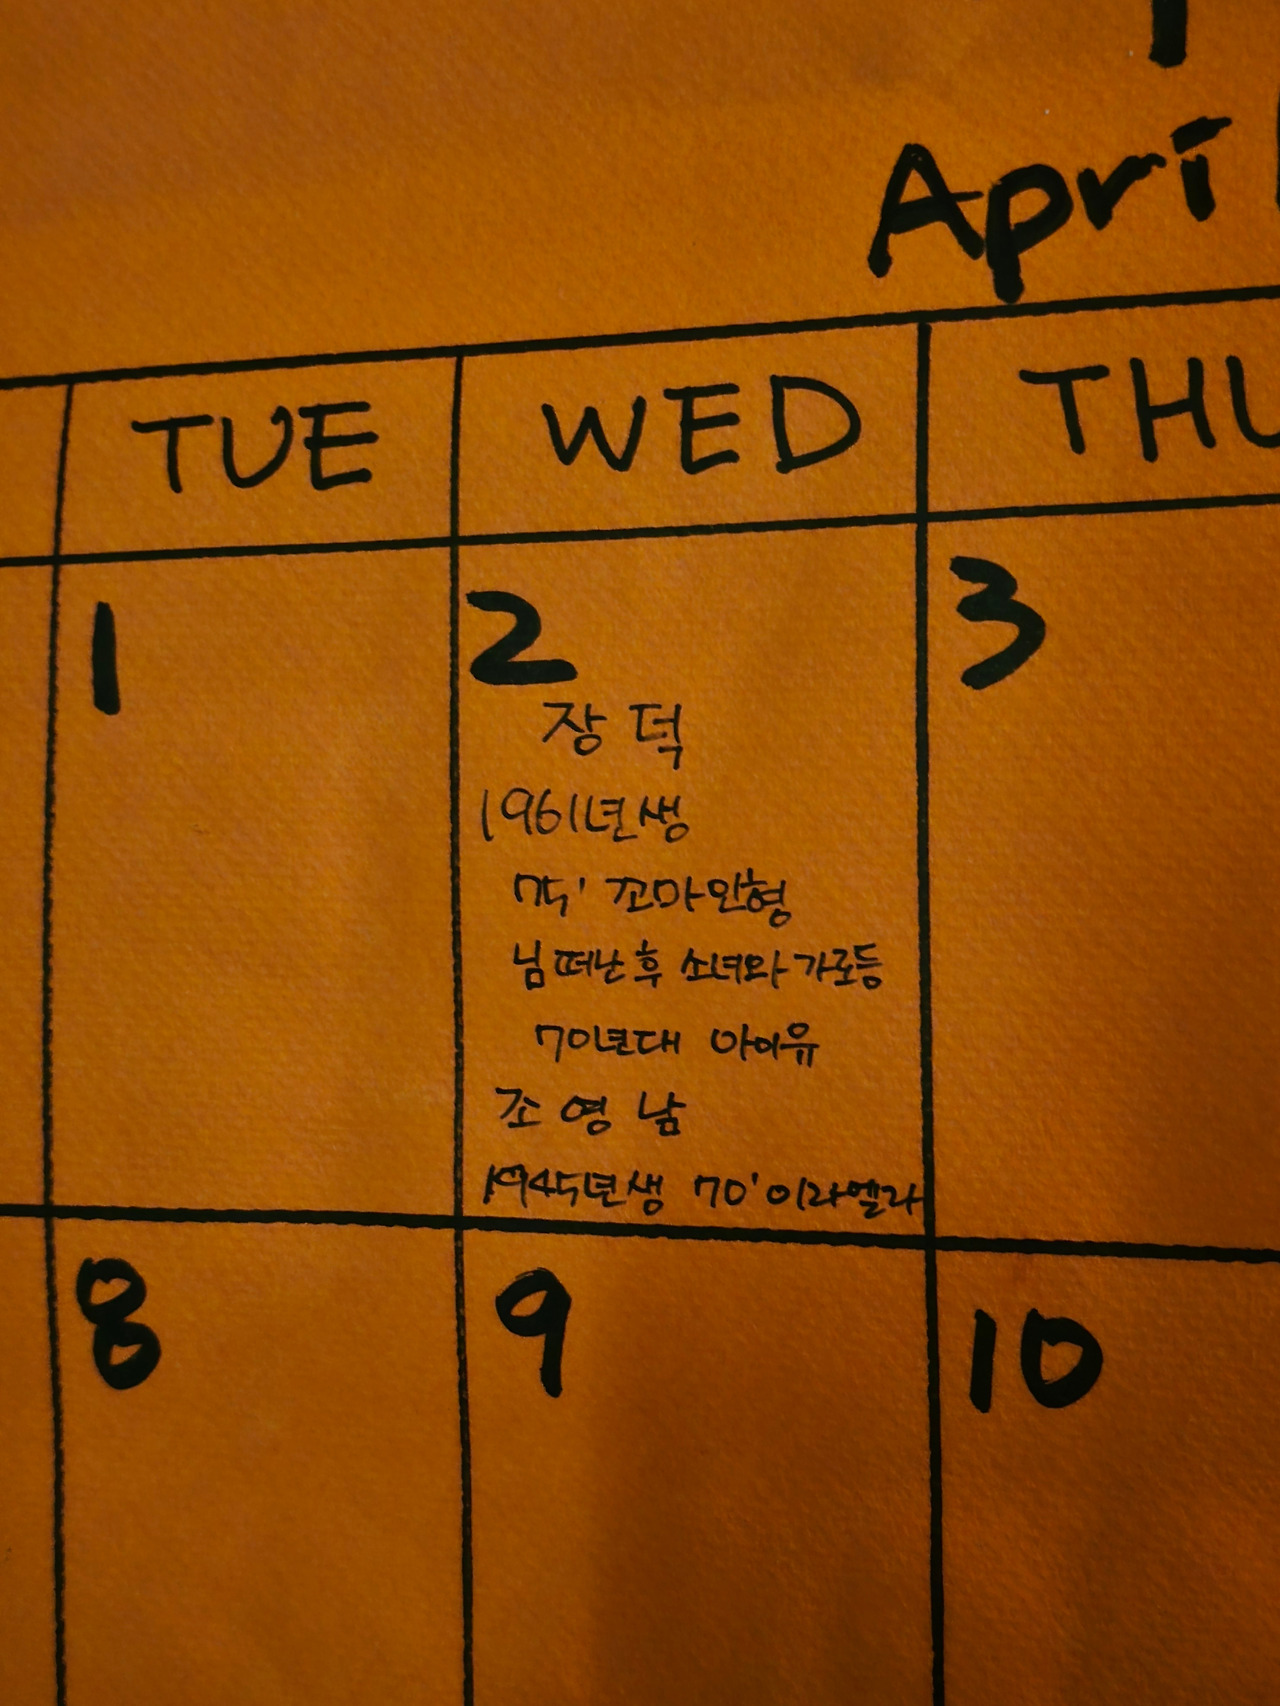 April
TUE WED THU
1 2 3
장덕
1961년생
75' 꼬마인형
님 떠난 후 소녀와 가로등
70년대 아이유
조영남
1945년생 70' 이라엘라
8 9 10